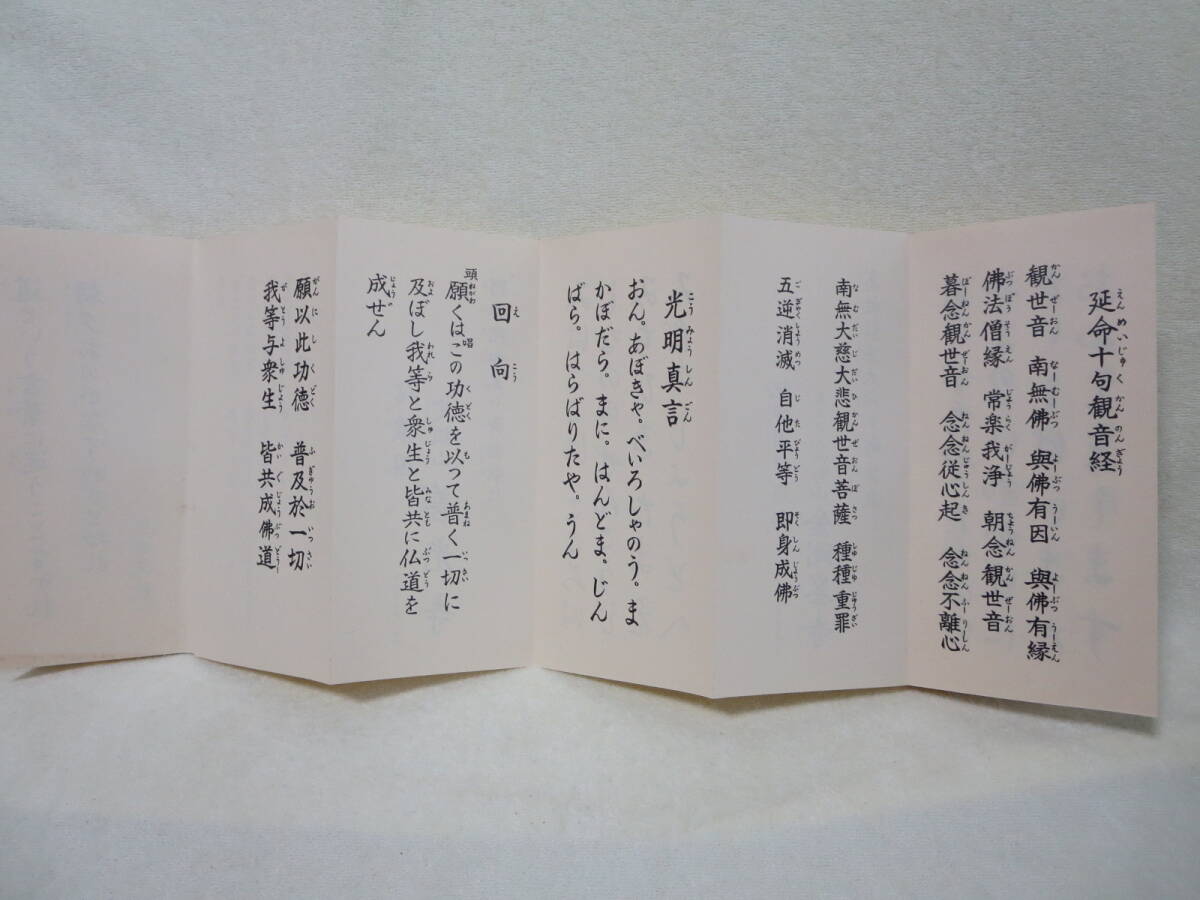 延命十句観音経
観世音 南無佛 與佛有因 與佛有縁
佛法僧縁 常楽我浄 朝念観世音
暮念観世音 念念従心起 念念不離心
南無大慈大悲観世音菩薩 種種重罪
五逆消滅 自他平等 即身成佛
光明真言
おん。あぼきゃ。べいろしゃのう。ま
かぼだら。まに。はんどま。じん
ばら。はらばりたや。うん
回向
頭唱
願くはこの功徳を以つて普く一切に
及ぼし我等と衆生と皆共に仏道を
成ぜん
願以此功徳 普及於一切
我等与衆生 皆共成佛道